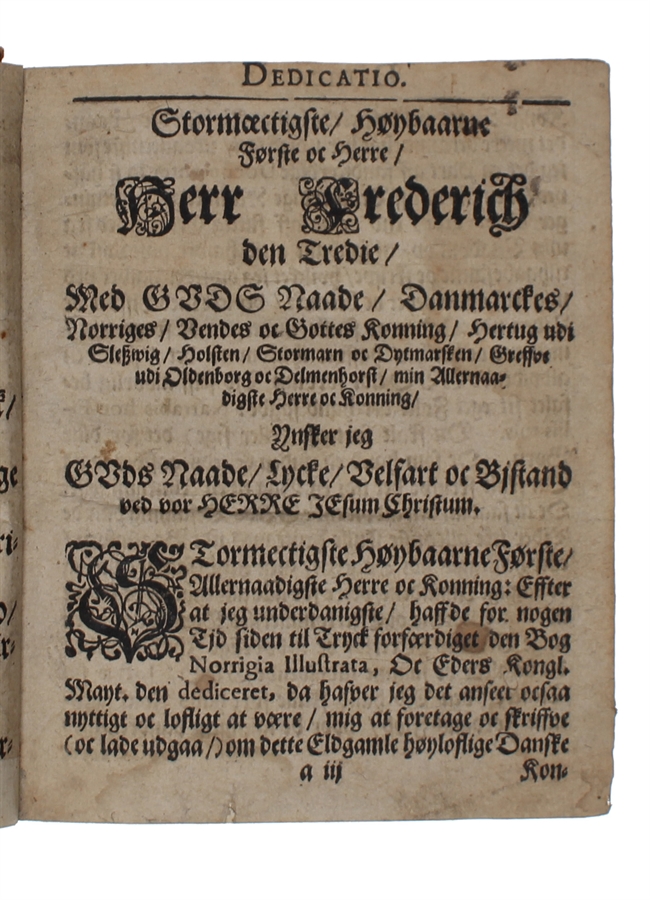 DEDICATIO.
Stormæctigste/ Høybaarne
Første oc Herre/
Herr Frederich
den Tredie/
Med GVDS Naade/ Danmarckes/
Norriges/ Vendes oc Gottes Konning/ Hertug udi
Sleßwig/ Holsten/ Stormarn oc Dytmarsken/ Greffve
udi Oldenborg oc Delmenhorst/ min Allernaa-
digste Herre oc Konning/
Ynsker jeg
GVds Naade/ Lycke/ Velfart oc Bjstand
ved vor HERRE JEsum Christum.
STormectigste Høybaarne Første/
Allernaadigste Herre oc Konning: Effter
at jeg underdanigste/ haffde for nogen
Tjd siden til Tryck forfærdiget den Bog
Norrigia Illustrata, Oc Eders Kongl.
Mayt. den dediceret, da hafver jeg det anseet ocsaa
nyttigt oc lofligt at være/ mig at foretage oc skriffve
(oc lade udgaa/) om dette Eldgamle høyloflige Danske
a iij Kon-
ge
ri-